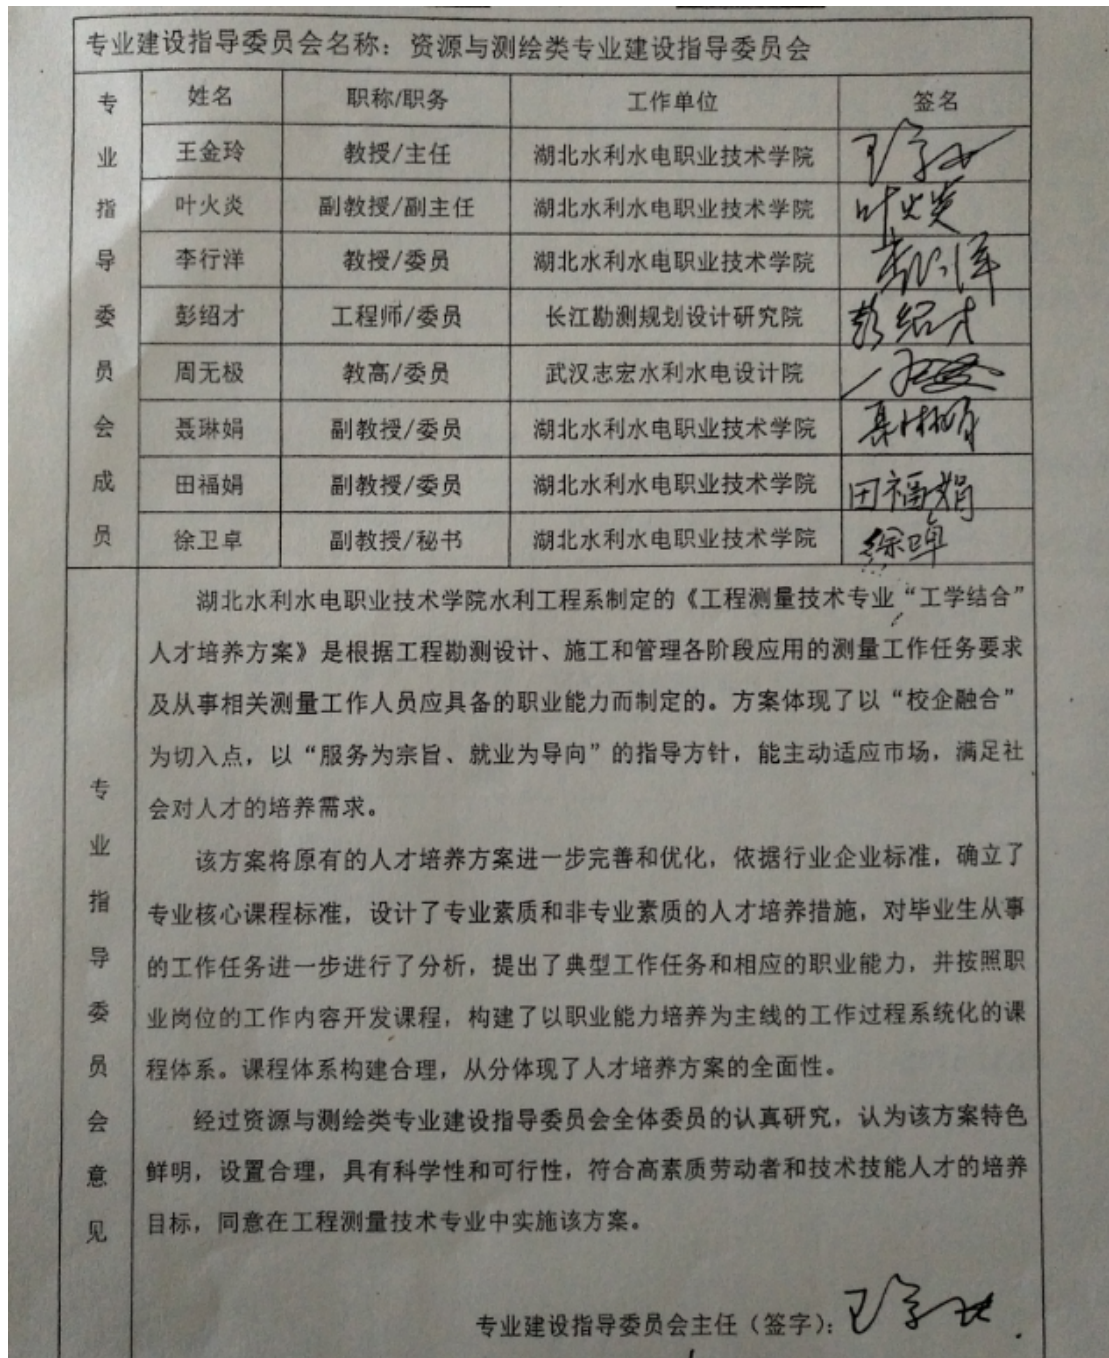 专业建设指导委员会名称：资源与测绘类专业建设指导委员会
专业指导委员会成员
姓名 职称/职务 工作单位 签名
王金玲 教授/主任 湖北水利水电职业技术学院
叶火炎 副教授/副主任 湖北水利水电职业技术学院 叶火炎
李行洋 教授/委员 湖北水利水电职业技术学院
彭绍才 工程师/委员 长江勘测规划设计研究院 彭绍才
周无极 教高/委员 武汉志宏水利水电设计院
聂琳娟 副教授/委员 湖北水利水电职业技术学院 聂琳娟
田福娟 副教授/委员 湖北水利水电职业技术学院 田福娟
徐卫卓 副教授/秘书 湖北水利水电职业技术学院
专业指导委员会意见
湖北水利水电职业技术学院水利工程系制定的《工程测量技术专业“工学结合”
人才培养方案》是根据工程勘测设计、施工和管理各阶段应用的测量工作任务要求
及从事相关测量工作人员应具备的职业能力而制定的。方案体现了以“校企融合”
为切入点，以“服务为宗旨、就业为导向”的指导方针，能主动适应市场，满足社
会对人才的培养需求。
该方案将原有的人才培养方案进一步完善和优化，依据行业企业标准，确立了
专业核心课程标准，设计了专业素质和非专业素质的人才培养措施，对毕业生从事
的工作任务进一步进行了分析，提出了典型工作任务和相应的职业能力，并按照职
业岗位的工作内容开发课程，构建了以职业能力培养为主线的工作过程系统化的课
程体系。课程体系构建合理，从分体现了人才培养方案的全面性。
经过资源与测绘类专业建设指导委员会全体委员的认真研究，认为该方案特色
鲜明，设置合理，具有科学性和可行性，符合高素质劳动者和技术技能人才的培养
目标，同意在工程测量技术专业中实施该方案。
专业建设指导委员会主任（签字）：